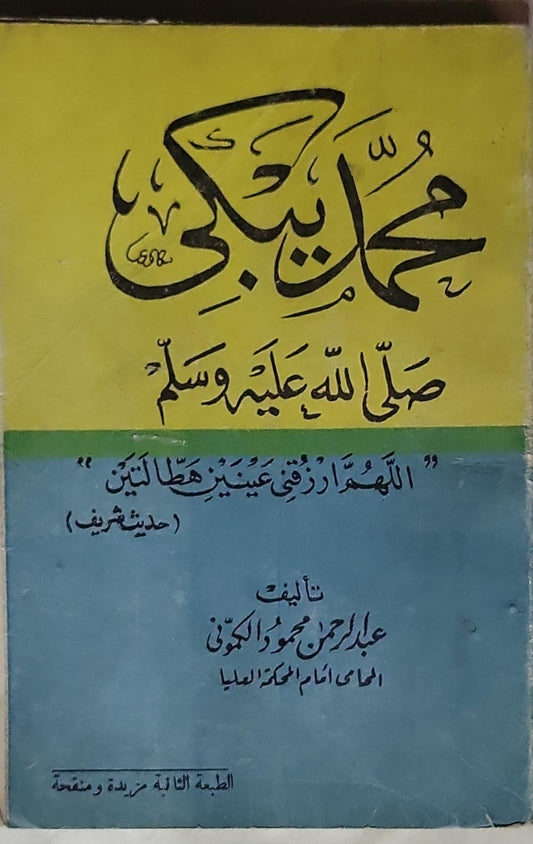 محمّد يبكي
صَلّى اللّه عَلَيْه وَسَلّمْ
"اللَّهُمَّ ارْزُقْنِي عَيْنَيْنِ هَطّالَتَيْن"
(حديث شريف)
تأليف
عبد الرحمن محمود الكمّوني
المحامى أمام المحكمة العليا
الطبعة الثانية مزيدة ومنقحة